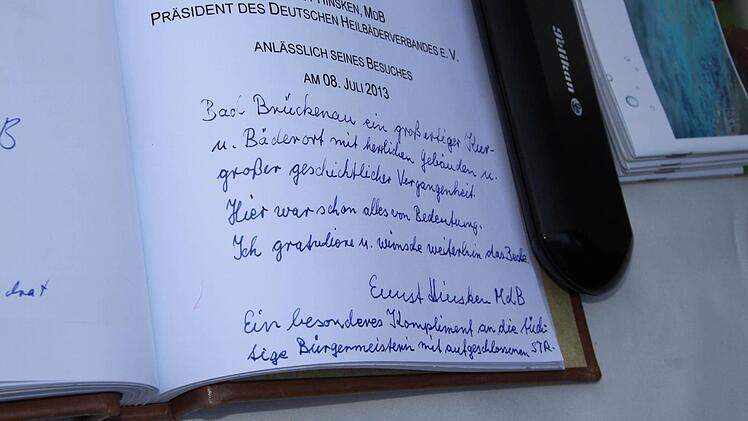 HINSKEN, MDB
PRÄSIDENT DES DEUTSCHEN HEILBÄDERVERBANDES E. V.
ANLÄSSLICH SEINES BESUCHES
AM 08. JULI 2013
Bad Brückenau ein großartiger Kur-
u. Bäderort mit herrlichen Gebäuden u.
großer geschichtlicher Vergangenheit.
Hier war schon alles von Bedeutung.
Ich gratuliere u. wünsche weiterhin das Beste.
Ernst Hinsken MdB
Ein besonderes Kompliment an die tüch
tige Bürgermeisterin mit aufgeschlossenen STR.
B
drat
Pelikan